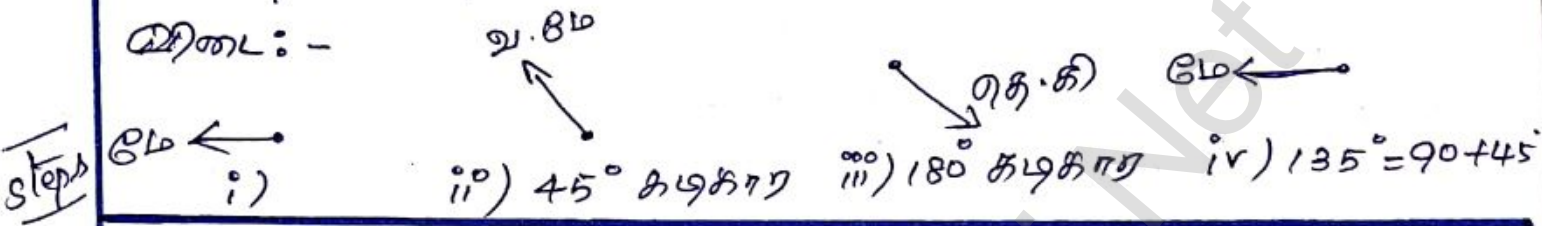 விடை : -
வ.மே
தெ.கி
மே
மே
steps
i)
ii) 45° கடிகார
iii) 180° கடிகார
iv) 135° = 90+45
Net